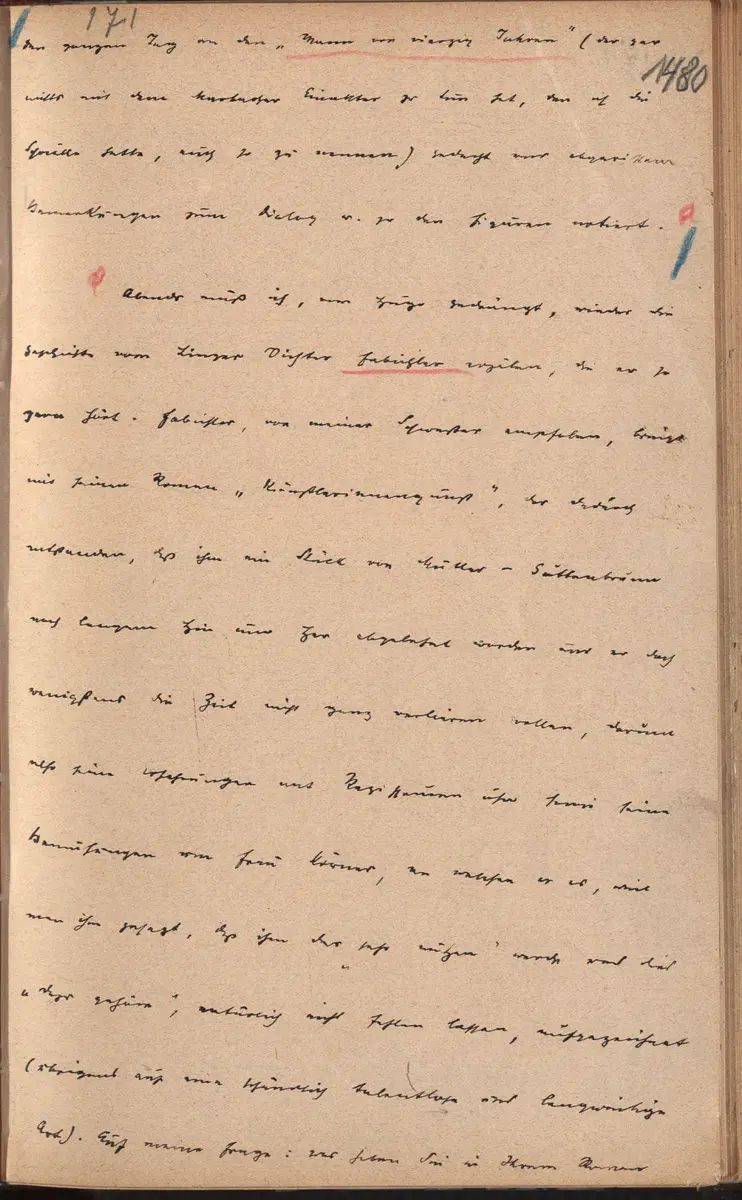 171
1480
den ganzen Tag an den „Mann von vierzig Jahren" (der gar
nichts mit dem Einakter zu tun hat, den ich die
hatte, auch so zu nennen) gedacht und
Bemerkungen zum Dialog u. zu den Figuren notiert.
Abends muß ich, von Hugo gedrängt, wieder die
Geschichte vom Linzer Dichter Fabichler erzählen, die er so
gern hört. Fabichler, von meiner Schwester empfohlen, bringt
mir seinen Roman „Künstlerinnengunst", der dadurch
entstanden, daß ihm ein Stück von Müller-Guttenbrunn
nach langem Hin und Her abgelehnt worden und er doch
wenigstens die Zeit nicht ganz verlieren wollen, darum
also seine Erfahrungen mit Regisseuren usw sowie seine
Bemühungen um Frau Körner, an welchen er es, weil
man ihm gesagt, daß ihm das sehr nützen werde und dies
„dazu gehöre", natürlich nicht fehlen lassen, aufgezeichnet
(übrigens auf eine schändlich talentlose und langweilige
Art). Auf meine Frage: was haben Sie in Ihrem Roman